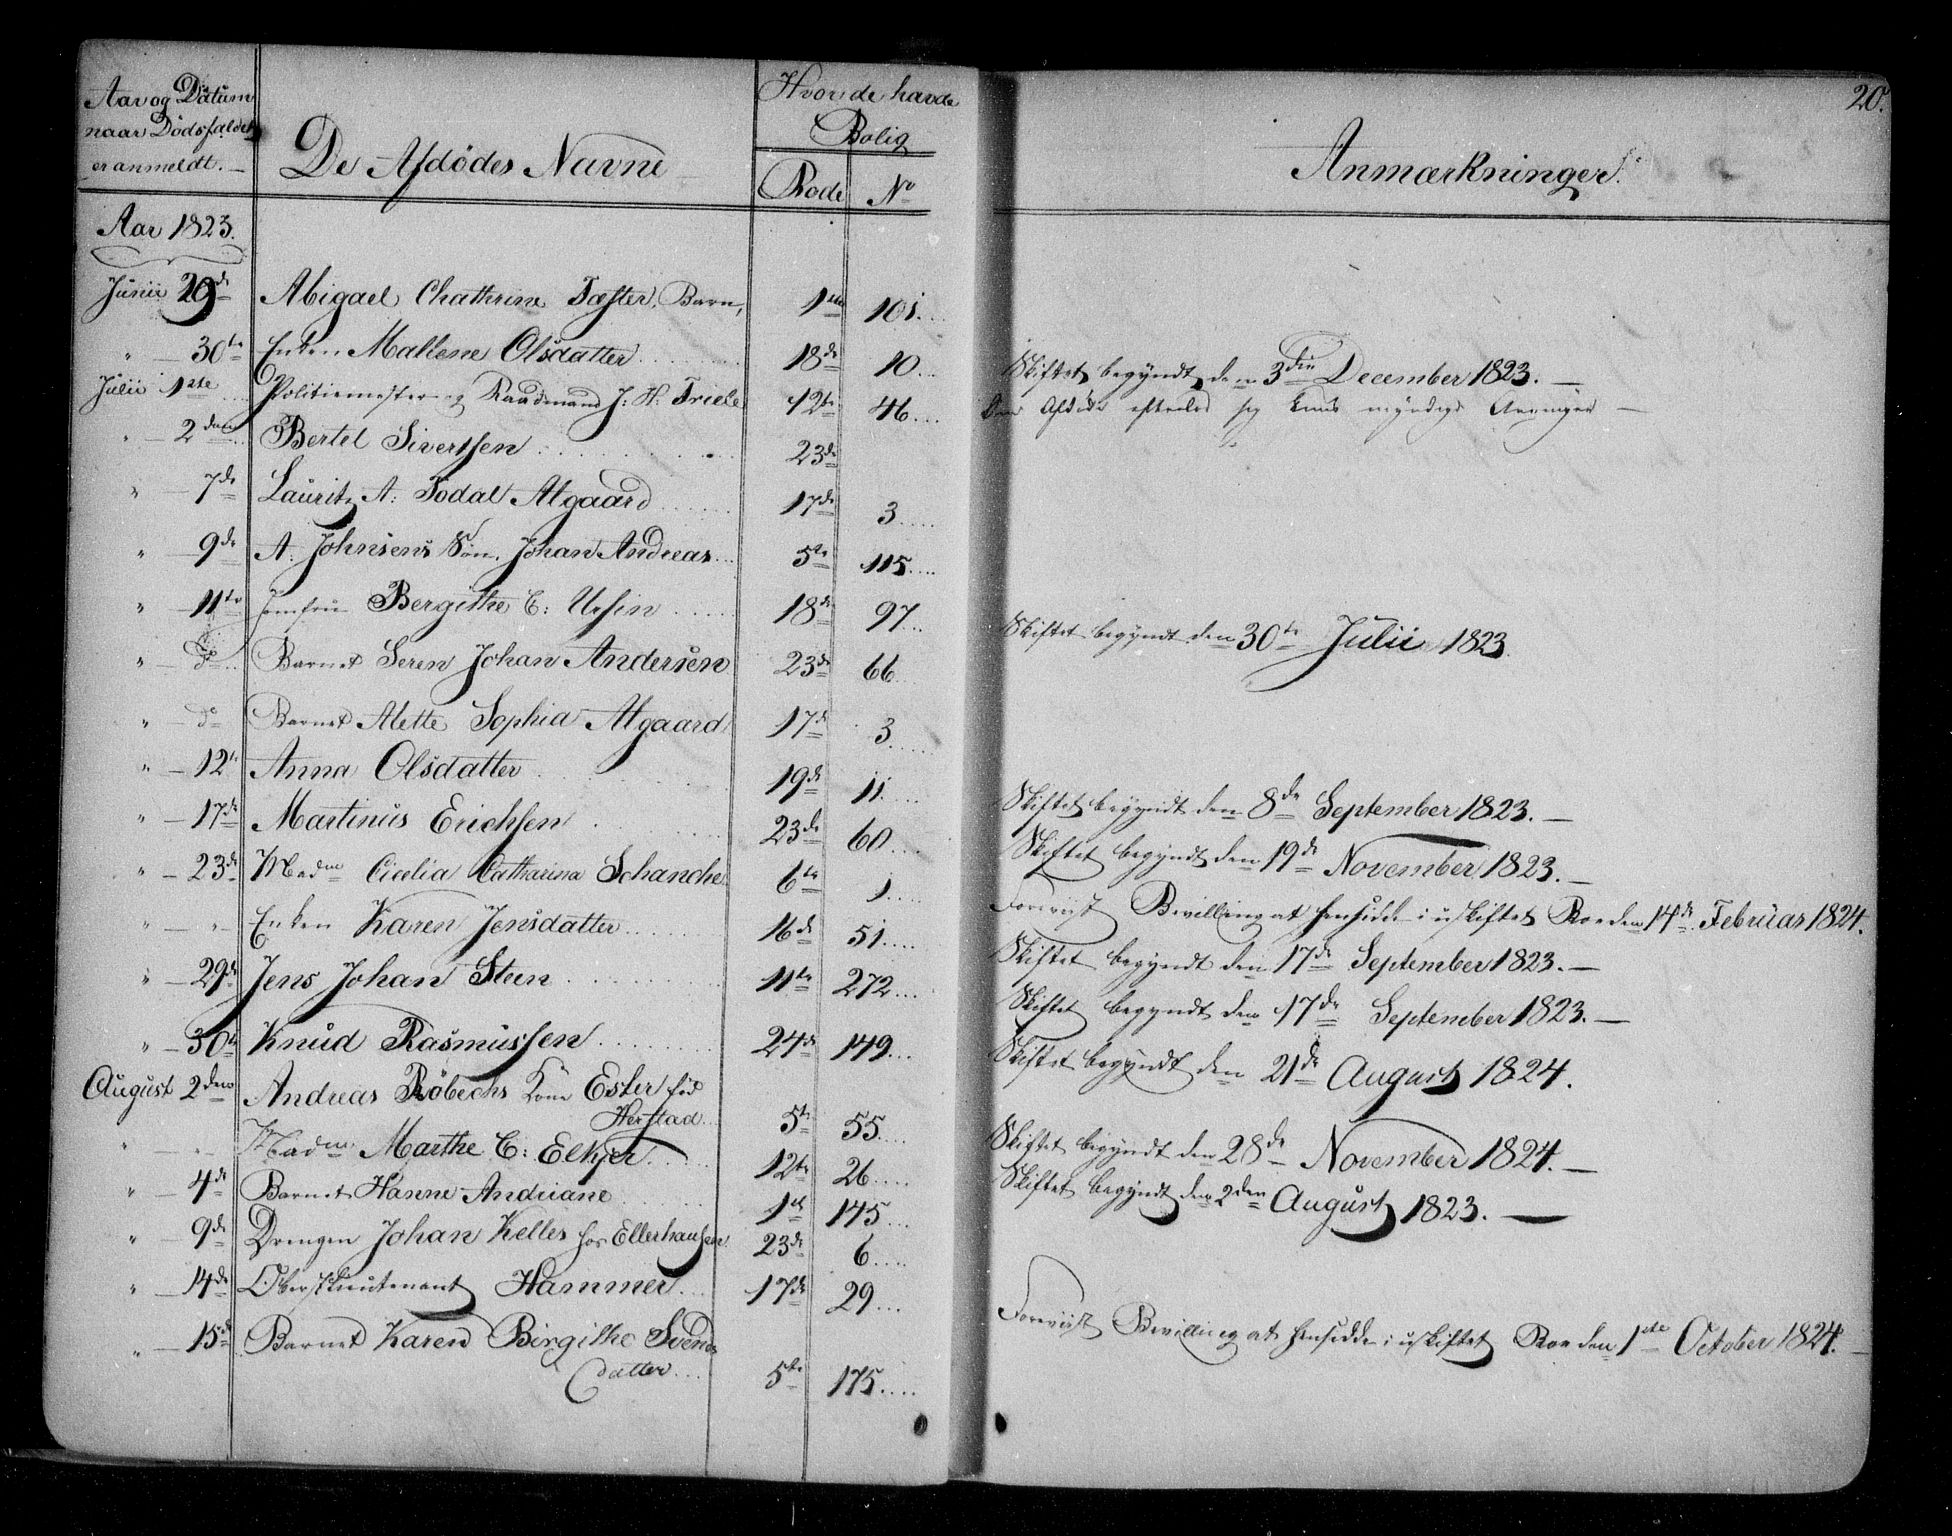 20.
Aar og Datum
naar Dödsfaldet
er anmeldt.
De Afdödes Navne
Hvor de havde
Bolig
Rode No
Anmærkninger.
Aar 1823.
Junii 29de Abigael Chathrine Fæster, Barn, 1ste 101.
" 30te Enken Mallene Olsdatter 18de 10 Skiftet begyndt den 3die December 1823.
Julii 1ste Politiemester og Raadmand J: H: Triele 12te 46 Den Afdöde efterlod sig kuns myndige Arvinger
" 2den Bertel Sivertsen 23de
" 7de Lauritz A: Todal Algaard 17de 3
" 9de A. Johnsens Sön, Johan Andreas 5te 115
" 11te Jomfru Bergithe C: Ursin 18de 97 Skiftet begyndt den 30te Julii 1823.
" do Barnet Seren Johan Andersen 23de 66
" do Barnet Alette Sophia Algaard 17de 3
" 12te Anna Olsdatter 19de 11 Skiftet begyndt den 8de September 1823.
" 17de Martinus Erichsen 23de 60 Skiftet begyndt den 19de November 1823.
" 23de Madme Cicelia Catharina Schanche 6te 1 Foreviist Bevilling at hensidde i uskiftet Boe den 14de Februar 1824.
" " Enken Karen Jensdatter 16de 51 Skiftet begyndt den 17de September 1823.
" 29de Jens Johan Steen 11te 272 Skiftet begyndt den 17de September 1823.
" 30te Knud Rasmussen 24de 149 Skiftet begyndt den 21de August 1824.
August 2den Andreas Röbechs Kone Ester föd
Herstad 5te 55 Skiftet begyndt den 28de November 1824.
" " Madme Marthe C: Elhjer 12te 26 Skiftet begyndt den 2den August 1823.
" 4de Barnet Hanne Andriane 1ste 145
" 9de Drengen Johan Kelles hos Ellerhausen 23de 6
" 14de Oberstlieutenant Hammer 17de 29 Foreviist Bevilling at hensidde i uskiftet Boe den 1ste October 1824.
" 15de Barnet Karen Birgithe Svends
datter 5te 175